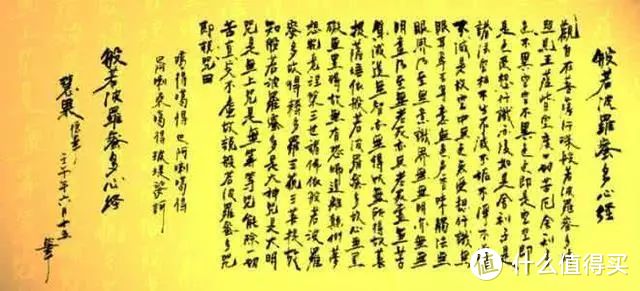 般若波羅蜜多心経
觀自在菩薩行深般若波羅蜜多時
照見五蘊皆空度一切苦厄舍利子
色不異空空不異色色即是空空即
是色受想行識亦復如是舍利子是
諸法空相不生不滅不垢不淨不增
不減是故空中無色無受想行識無
眼耳鼻舌身意無色聲香味觸法無
眼界乃至無意識界無無明亦無無
明盡乃至無老死亦無老死盡無苦
集滅道無智亦無得以無所得故菩
提薩埵依般若波羅蜜多故心無罣
礙無罣礙故無有恐怖遠離顛倒夢
想究竟涅槃三世諸佛依般若波羅
蜜多故得耨多羅三藐三菩提故
知般若波羅蜜多是大神咒是大明
咒是無上咒是無等等咒能除一切
苦真實不虛故說般若波羅蜜多咒
即說咒曰
噶得噶得巴阿喇噶得
般若波羅蜜多心経
年六月十五
值 什么值得买